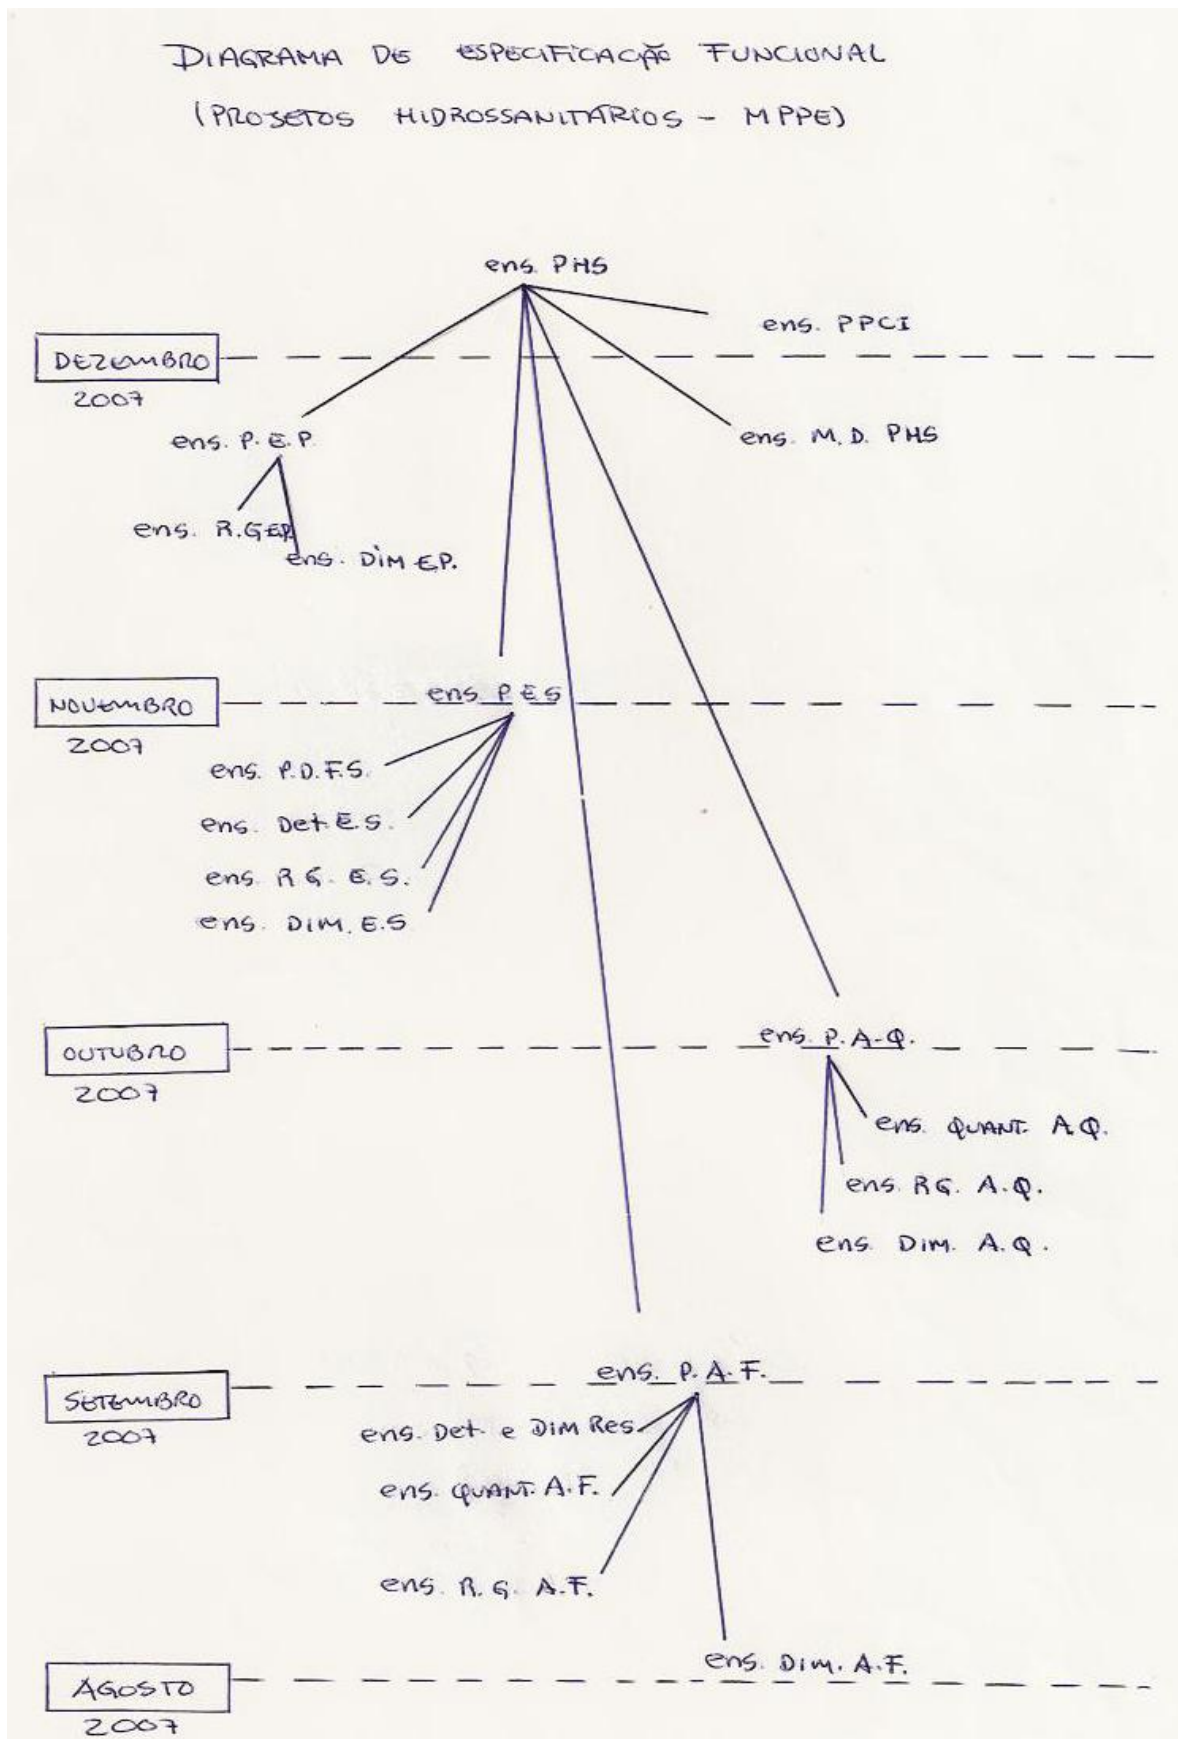 DIAGRAMA DE ESPECIFICAÇÃO FUNCIONAL
(PROJETOS HIDROSSANITÁRIOS - MPPE)
ens. PHS
ens. PPCI
DEZEMBRO
2007
ens. P.E.P.
ens. M.D. PHS
ens. R.G.E.P.
ens. DIM E.P.
NOVEMBRO
2007
ens P E S
ens. P.D.F.S.
ens. Det. E.S.
ens. R G. E.S.
ens. DIM. E.S
OUTUBRO
2007
ens. P. A-Q.
ens. QUANT. A.Q.
ens. RG. A.Q.
ens. Dim. A.Q.
SETEMBRO
2007
ens. P.A.F.
ens. Det. e DIM Res.
ens. QUANT. A.F.
ens. R.G. A.F.
ens. Dim. A.F.
AGOSTO
2007